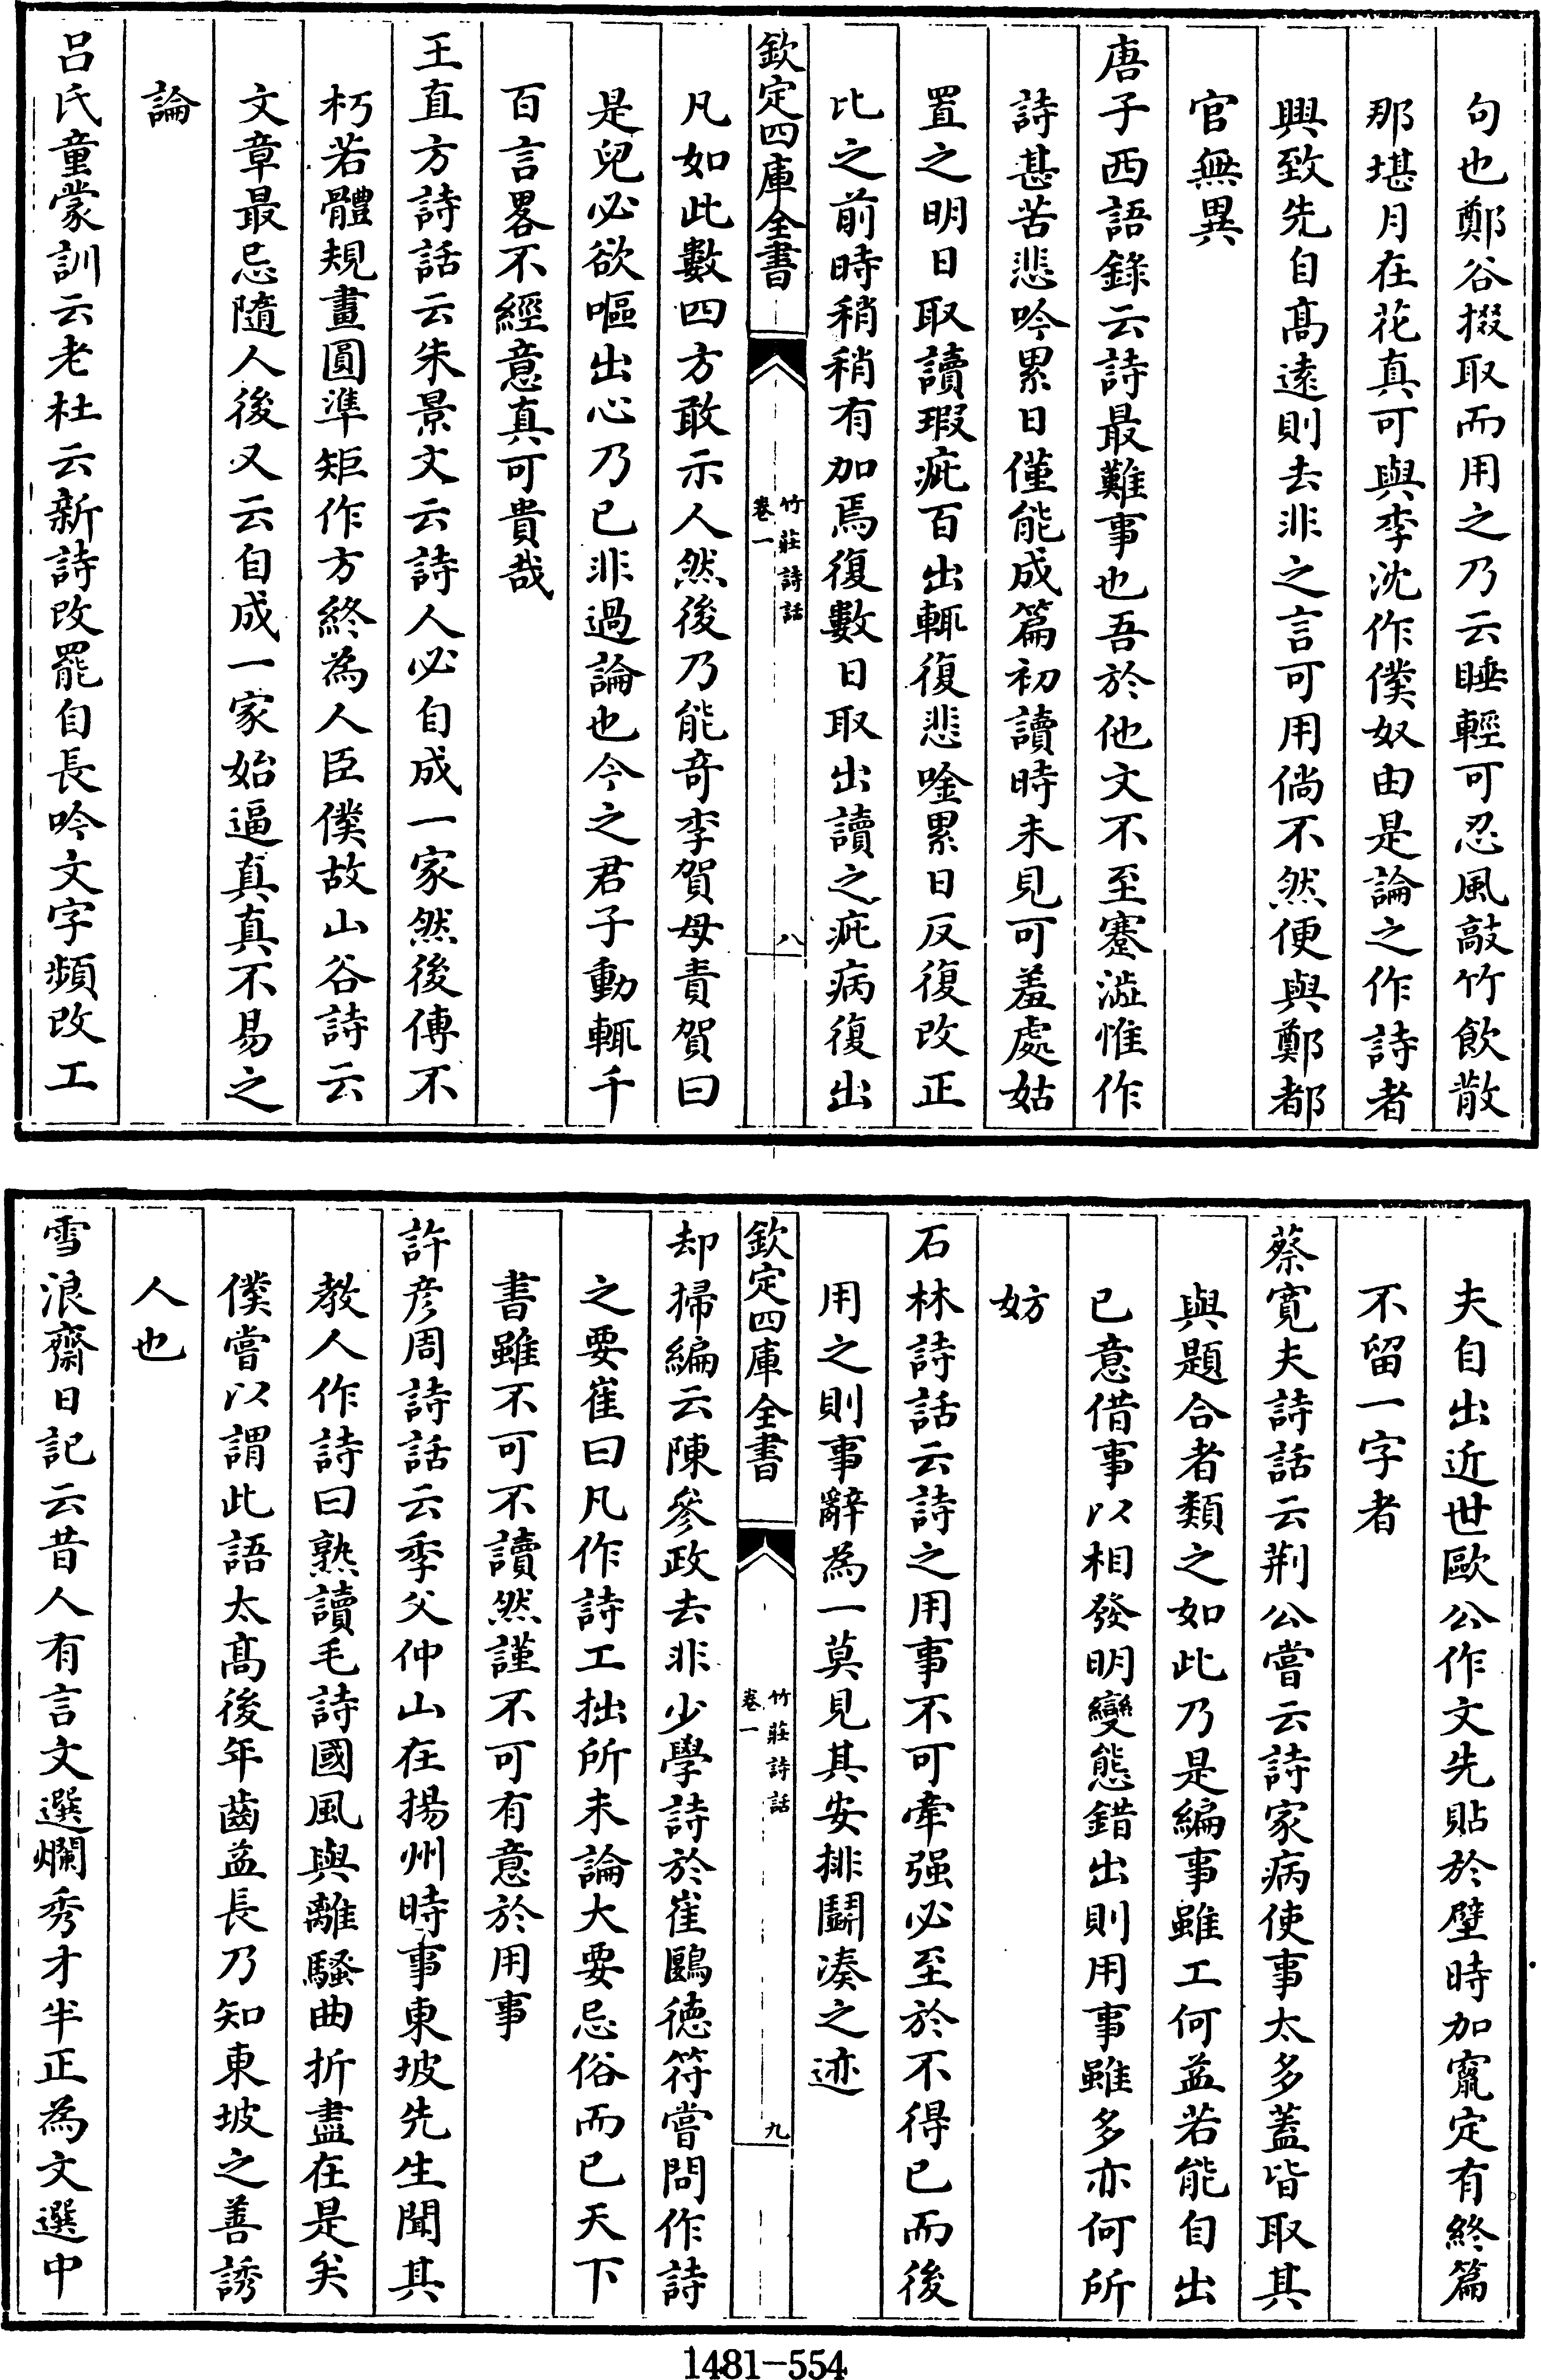 句也鄭谷掇取而用之乃云睡輕可忍風敲竹飲散
那堪月在花真可與李沈作僕奴由是論之作詩者
興致先自髙遠則去非之言可用倘不然便與鄭都
官無異
唐子西語錄云詩最難事也吾於他文不至蹇澁惟作
詩甚苦悲吟累日僅能成篇初讀時未見可羞處姑
置之明日取讀瑕疵百出輒復悲唫累日反復改正
比之前時稍稍有加焉復數日取出讀之疵病復出
欽定四庫全書
竹莊詩話
卷一
八
凡如此數四方敢示人然後乃能奇李賀母責賀曰
是兒必欲嘔出心乃已非過論也今之君子動輒千
百言畧不經意真可貴哉
王直方詩話云朱景文云詩人必自成一家然後傳不
朽若體規畫圓準矩作方終為人臣僕故山谷詩云
文章最忌隨人後又云自成一家始逼真真不易之
論
呂氏童蒙訓云老杜云新詩改罷自長吟文字頻改工
夫自出近世歐公作文先貼於壁時加竄定有終篇
不留一字者
蔡寛夫詩話云荆公嘗云詩家病使事太多蓋皆取其
與題合者類之如此乃是編事雖工何益若能自出
已意借事以相發明變態錯出則用事雖多亦何所
妨
石林詩話云詩之用事不可牽强必至於不得已而後
用之則事辭為一莫見其安排鬭凑之迹
欽定四庫全書
竹莊詩話
卷一
九
却掃編云陳參政去非少學詩於崔鷗徳符嘗問作詩
之要崔曰凡作詩工拙所未論大要忌俗而已天下
書雖不可不讀然謹不可有意於用事
許彦周詩話云季父仲山在揚州時事東坡先生聞其
教人作詩曰熟讀毛詩國風與離騷曲折盡在是矣
僕嘗以謂此語太髙後年齒益長乃知東坡之善誘
人也
雪浪齋日記云昔人有言文選爛秀才半正為文選中
1481-554